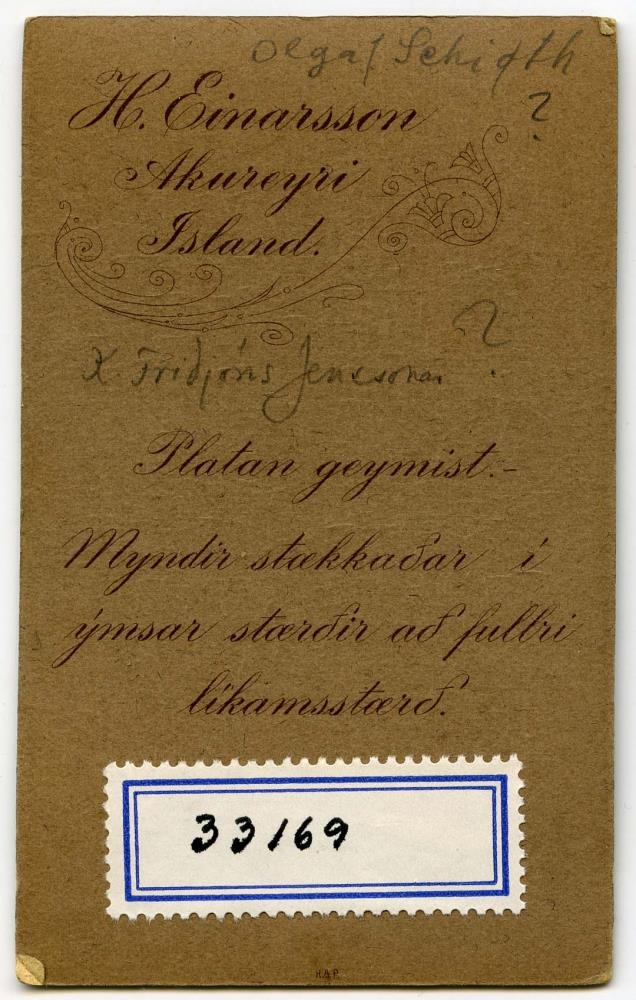 Olga f Schiöth
?
H. Einarsson
Akureyri
Ísland.
?
K. Friðjóns Jenssonar
Platan geymist.-
Myndir stækkaðar í
ýmsar stærðir að fullri
líkamsstærð.
33169
H.&P.